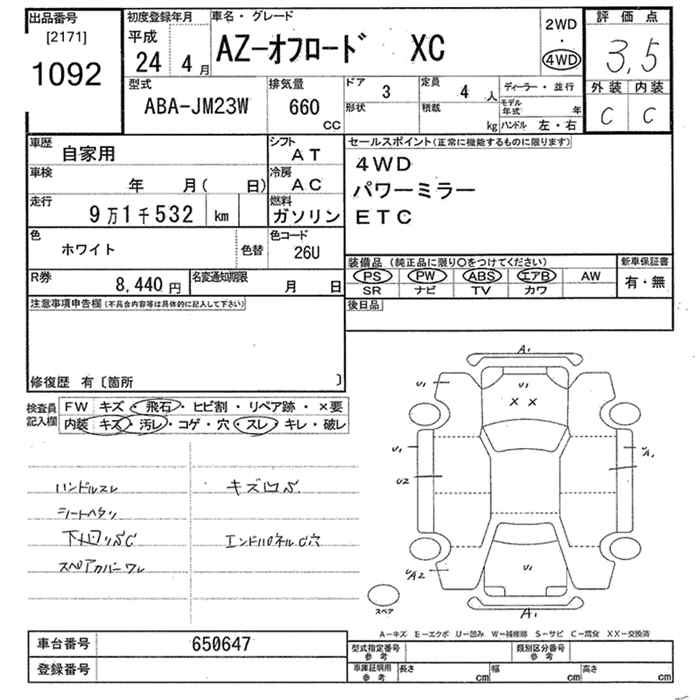 出品番号
[2171]
1092
初度登録年月
平成
24年 4月
車名・グレード
AZ-オフロード XC
2WD
・
4WD
評価点
3.5
外装 内装
C C
型式
ABA-JM23W
排気量
660
CC
ドア 3
形状
定員 4人
積載 kg
ディーラー・並行
モデル年式 年
ハンドル 左・右
車歴 自家用
シフト AT
車検 年 月( 日)
冷房 AC
走行 9万1千532 km
燃料 ガソリン
色 ホワイト
色替
色コード 26U
R券 8,440円
名変通知期限 月 日
セールスポイント(正常に機能するものに限ります)
4WD
パワーミラー
ETC
装備品(純正品に限り○をつけてください)
PS PW ABS エアB AW
SR ナビ TV カワ
新車保証書
有・無
後日品
注意事項申告欄(不具合内容等は具体的に記入して下さい)
修復歴 有〔箇所 〕
検査員記入欄
FW キズ・飛石・ヒビ割・リペア跡・×要
内装 キズ・汚レ・コゲ・穴・スレ・キレ・破レ
ハンドルスレ
シートヘタリ
スペアカバーワレ
キズ凹
エンドパネルC穴
A1
U1 U1
× ×
U1
U2
A1
U1
A2
A1
スペア
A-キズ E-エクボ U-凹み W-補修跡 S-サビ C-腐食 XX-交換済
車台番号 650647
登録番号
型式指定番号 参考
類別区分番号 参考
車庫証明用 参考 長さ cm 幅 cm 高さ cm